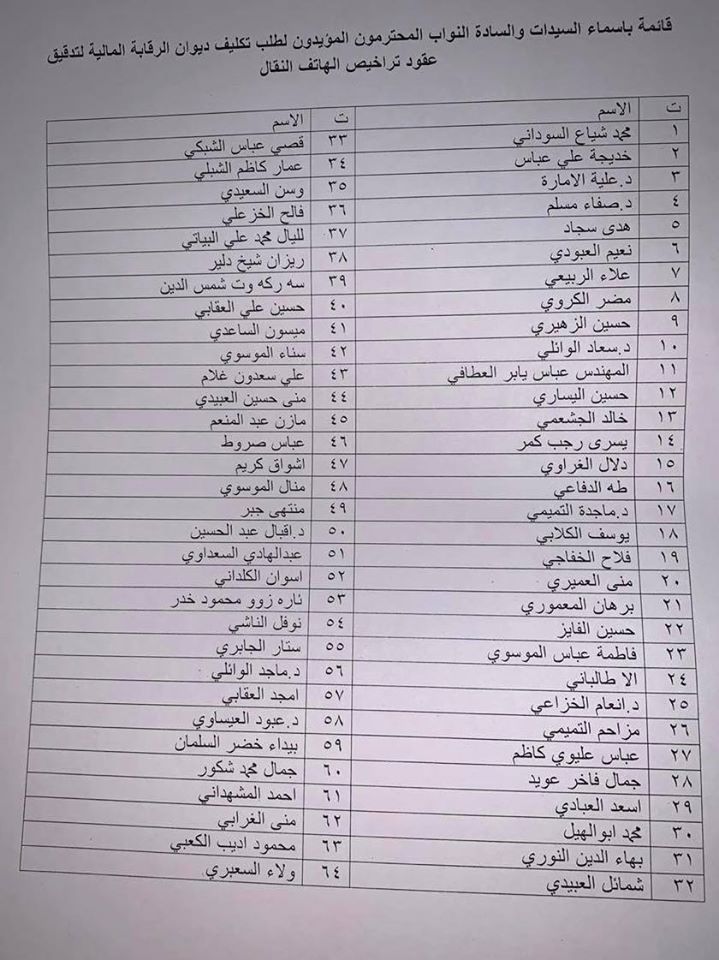 قائمة باسماء السيدات والسادة النواب المحترمون المؤيدون لطلب تكليف ديوان الرقابة المالية لتدقيق
عقود تراخيص الهاتف النقال
ت الاسم
١ محمد شياع السوداني
٢ خديجة علي عباس
٣ د.علية الامارة
٤ د.صفاء مسلم
٥ هدى سجاد
٦ نعيم العبودي
٧ علاء الربيعي
٨ مضر الكروي
٩ حسين الزهيري
١٠ د.سعاد الوائلي
١١ المهندس عباس يابر العطافي
١٢ حسين اليساري
١٣ خالد الجشعمي
١٤ يسرى رجب كمر
١٥ دلال الغراوي
١٦ طه الدفاعي
١٧ د.ماجدة التميمي
١٨ يوسف الكلابي
١٩ فلاح الخفاجي
٢٠ منى العميري
٢١ برهان المعموري
٢٢ حسين الفايز
٢٣ فاطمة عباس الموسوي
٢٤ الا طالباني
٢٥ د.انعام الخزاعي
٢٦ مزاحم التميمي
٢٧ عباس عليوي كاظم
٢٨ جمال فاخر عويد
٢٩ اسعد العبادي
٣٠ محمد ابوالهيل
٣١ بهاء الدين النوري
٣٢ شمائل العبيدي
ت الاسم
٣٣ قصي عباس الشبكي
٣٤ عمار كاظم الشبلي
٣٥ وسن السعيدي
٣٦ فالح الخزعلي
٣٧ لليال محمد علي البياتي
٣٨ ريزان شيخ دلير
٣٩ سه ركه وت شمس الدين
٤٠ حسين علي العقابي
٤١ ميسون الساعدي
٤٢ سناء الموسوي
٤٣ علي سعدون غلام
٤٤ منى حسين العبيدي
٤٥ مازن عبد المنعم
٤٦ عباس صروط
٤٧ اشواق كريم
٤٨ منال الموسوي
٤٩ منتهى جبر
٥٠ د.اقبال عبد الحسين
٥١ عبدالهادي السعداوي
٥٢ اسوان الكلداني
٥٣ ئاره زوو محمود خدر
٥٤ نوفل الناشي
٥٥ ستار الجابري
٥٦ د.ماجد الوائلي
٥٧ امجد العقابي
٥٨ د.عبود العيساوي
٥٩ بيداء خضر السلمان
٦٠ جمال محمد شكور
٦١ احمد المشهداني
٦٢ منى الغرابي
٦٣ محمود اديب الكعبي
٦٤ ولاء السعبري